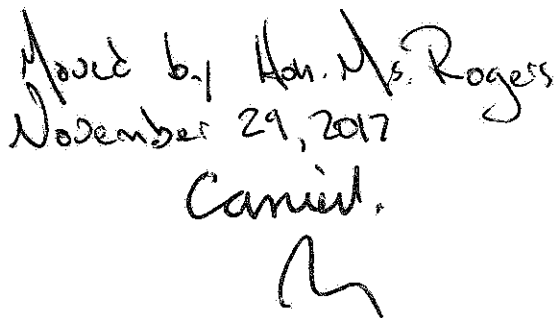 Moved by Hon. Ms. Rogers
November 29, 2017
Carried.